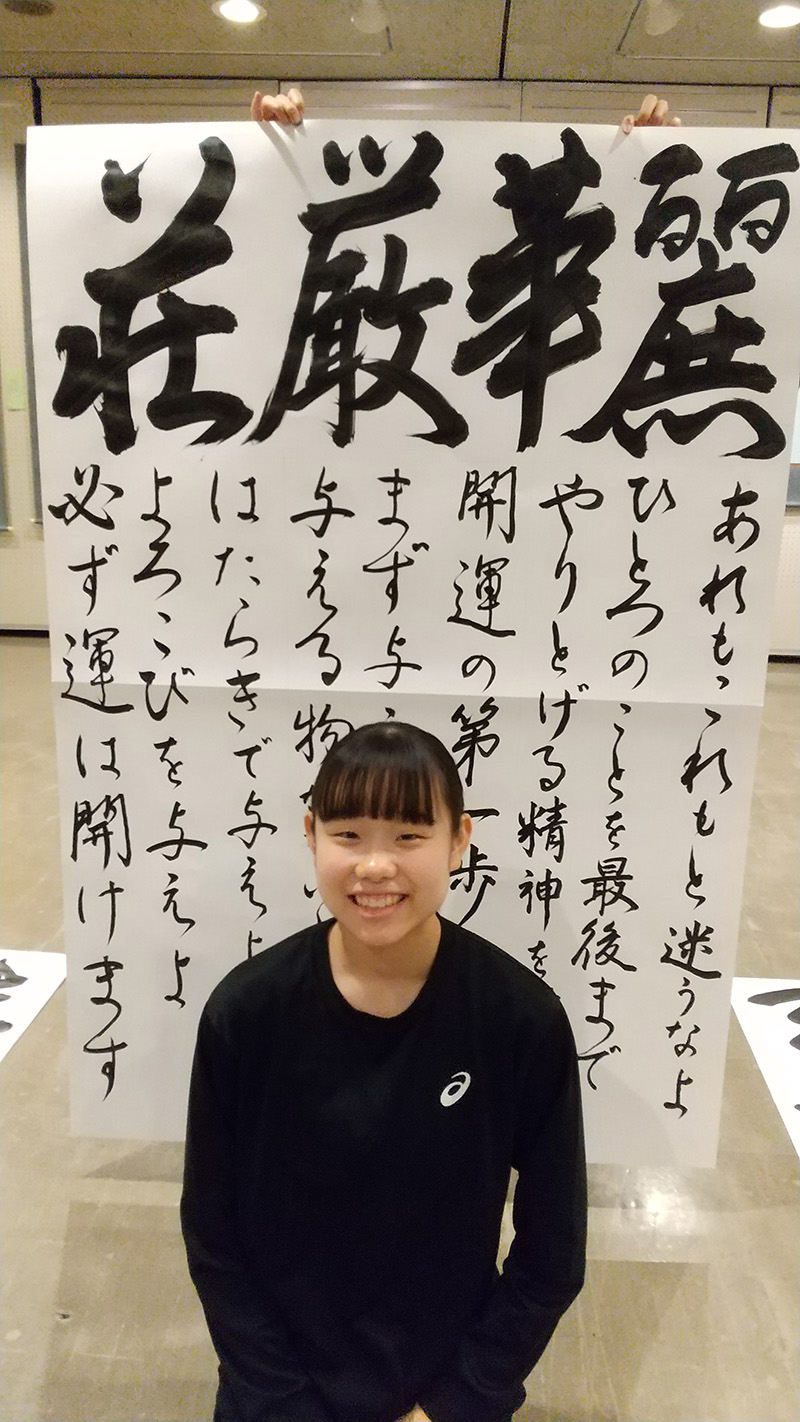 荘厳華麗
あれもこれもと迷うなよ
ひとつのことを最後まで
やりとげる精神を
開運の第一歩
まず与
与える物
はたらきで与えよ
よろこびを与えよ
必ず運は開けます